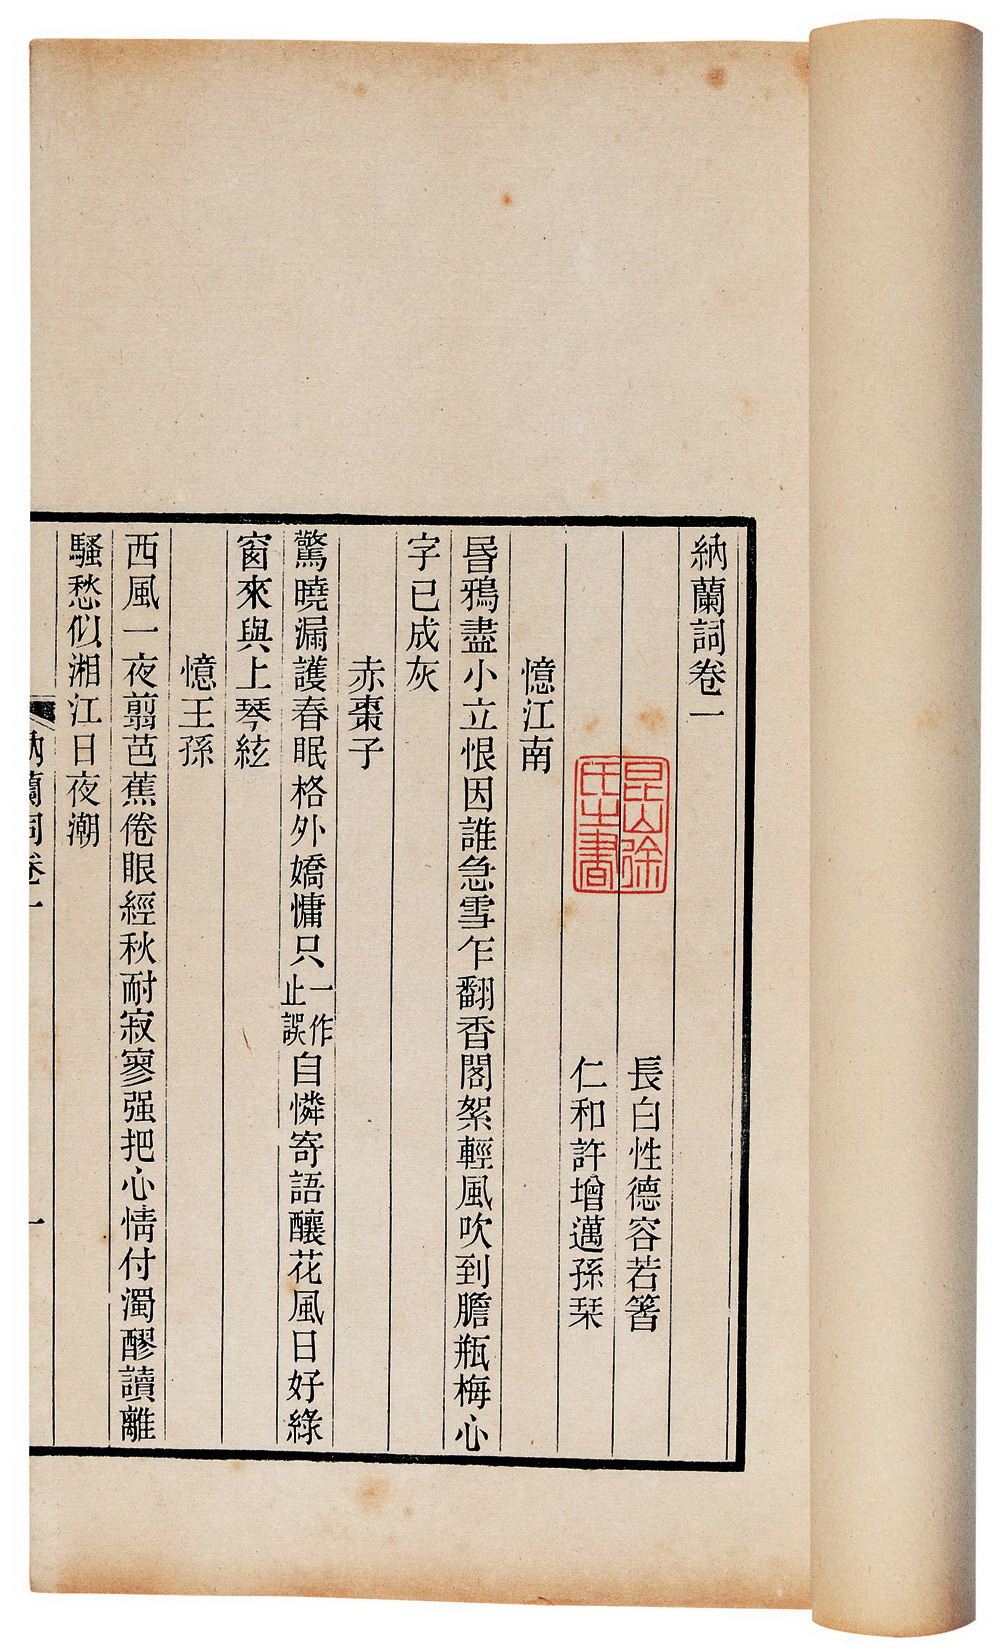 納蘭詞卷一
長白性德容若箸
仁和許增邁孫栞
昆山徐
氏之書
憶江南
昬鴉盡小立恨因誰急雪乍翻香閣絮輕風吹到膽瓶梅心
字已成灰
赤棗子
驚曉漏護春眠格外嬌慵只一作止誤自憐寄語釀花風日好綠
窗來與上琴絃
憶王孫
西風一夜翦芭蕉倦眼經秋耐寂寥强把心情付濁醪讀離
騷愁似湘江日夜潮
納蘭詞卷一
一